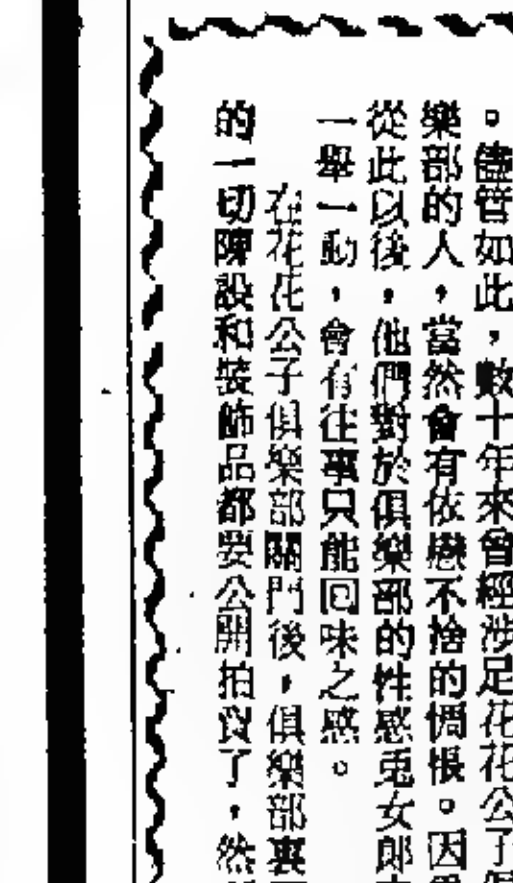 。儘管如此，數十年來曾經涉足花花公子
樂部的人，當然會有依戀不捨的惆悵。因
從此以後，他們對於俱樂部的性感兎女郎
一舉一動，會有往事只能回味之感。
在花花公子俱樂部關門後，俱樂部裏
的一切陳設和裝飾品都要公開拍賣了，然